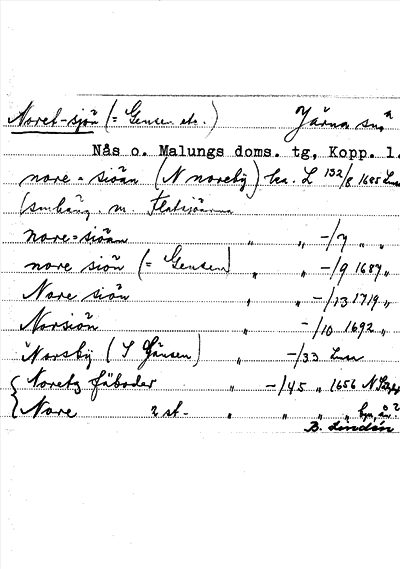 Noret-sjön (= Gensen etc.) Järna sn
Nås o. Malungs doms. tg, Kopp. l.
nore = siöän (N noreby) ka. L 132/8 1685 Lmr
(smhäng m. Flatsjöarna
nore = siöan " " -/7 " "
nore siön (= Gensen) " " -/9 1687 "
Nore siön " " -/13 1719 "
Norsiön " -/10 1692 "
Norsby (S Gänsen) " -/33 Lmr
Noretz fäboder " -/45 " 1656
Nore 2 st. " " " "
B. Lindén